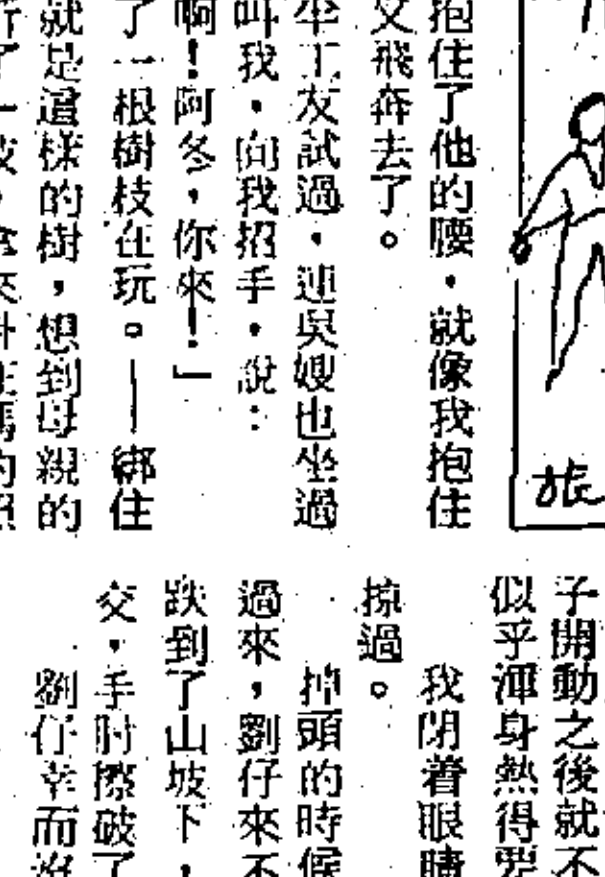 抱住了他的腰，就像我抱住
又飛奔去了。
坐工友試過，連吳嫂也坐過
叫我，向我招手，說：
啊！阿冬，你來！」
了一根樹枝在玩。——綁住
就是這樣的樹，想到母親的
折了一枝，拿來
的照
旅
子開動之後就不
似乎渾身熱得要
我閉着眼睛
掠過。
掉頭的時候
過來，劉仔來不
跌到了山坡下，
交，手肘擦破了
劉仔幸而沒